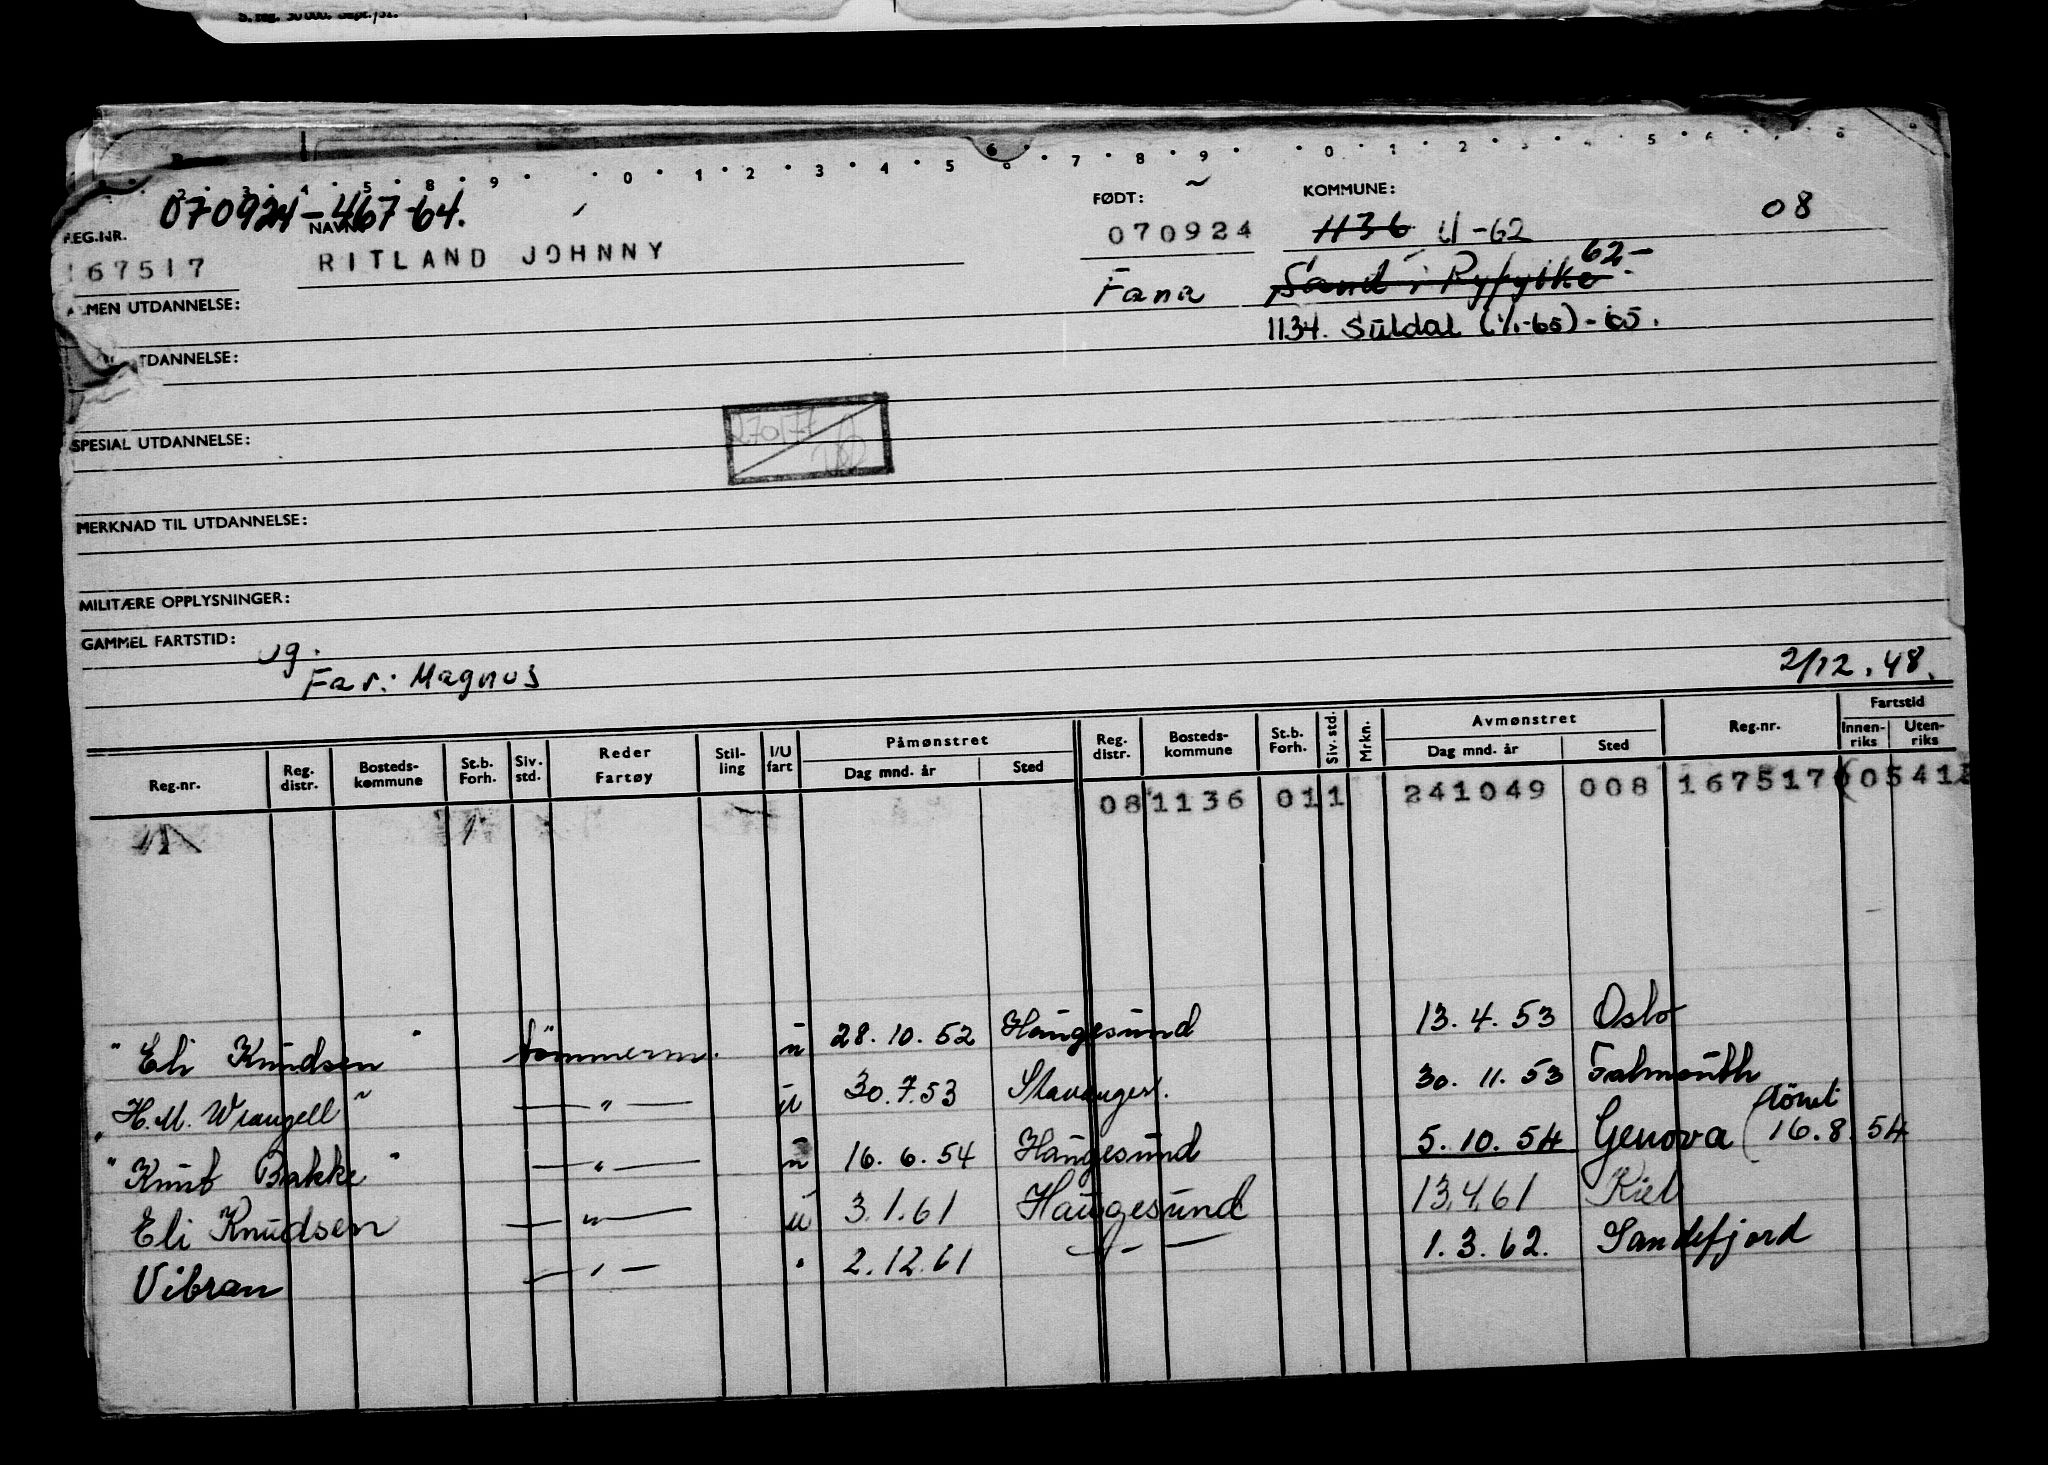 S. reg. 50 000. Sept. 51.
070924-46764.
REG.NR. NAVN: FØDT: KOMMUNE:
167517 RITLAND JOHNNY 070924 1136 U-62 08
Fana Sand i Ryfylke 62-
ALMEN UTDANNELSE:
1134. Suldal (1/1-65)-65.
UTDANNELSE:
SPESIAL UTDANNELSE:
MERKNAD TIL UTDANNELSE:
MILITÆRE OPPLYSNINGER:
GAMMEL FARTSTID:
ug.
Far: Magnus 2/12.48.
Reg.nr. Reg. distr. Bosteds-kommune St.b. Forh. Siv. std. Reder Fartøy Stil-ling I/U fart Påmønstret Dag mnd. år Sted Reg. distr. Bosteds-kommune St.b. Forh. Siv. std. Mrkn. Avmønstret Dag mnd. år Sted Reg.nr. Fartstid Innen-riks Uten-riks
08 1136 01 1 241049 008 167517 00541
"Eli Knudsen" tömmerm. u 28.10.52 Haugesund 13.4.53 Oslo
"H.M. Wrangell" —"— u 30.7.53 Stavanger. 30.11.53 Falmouth
"Knut Bakke" —"— u 16.6.54 Haugesund 5.10.54 Genova (lönet 16.8.54
Eli Knudsen —"— u 3.1.61 Haugesund 13.4.61 Kiel
Vibran —"— " 2.12.61 —"— 1.3.62. Sandefjord